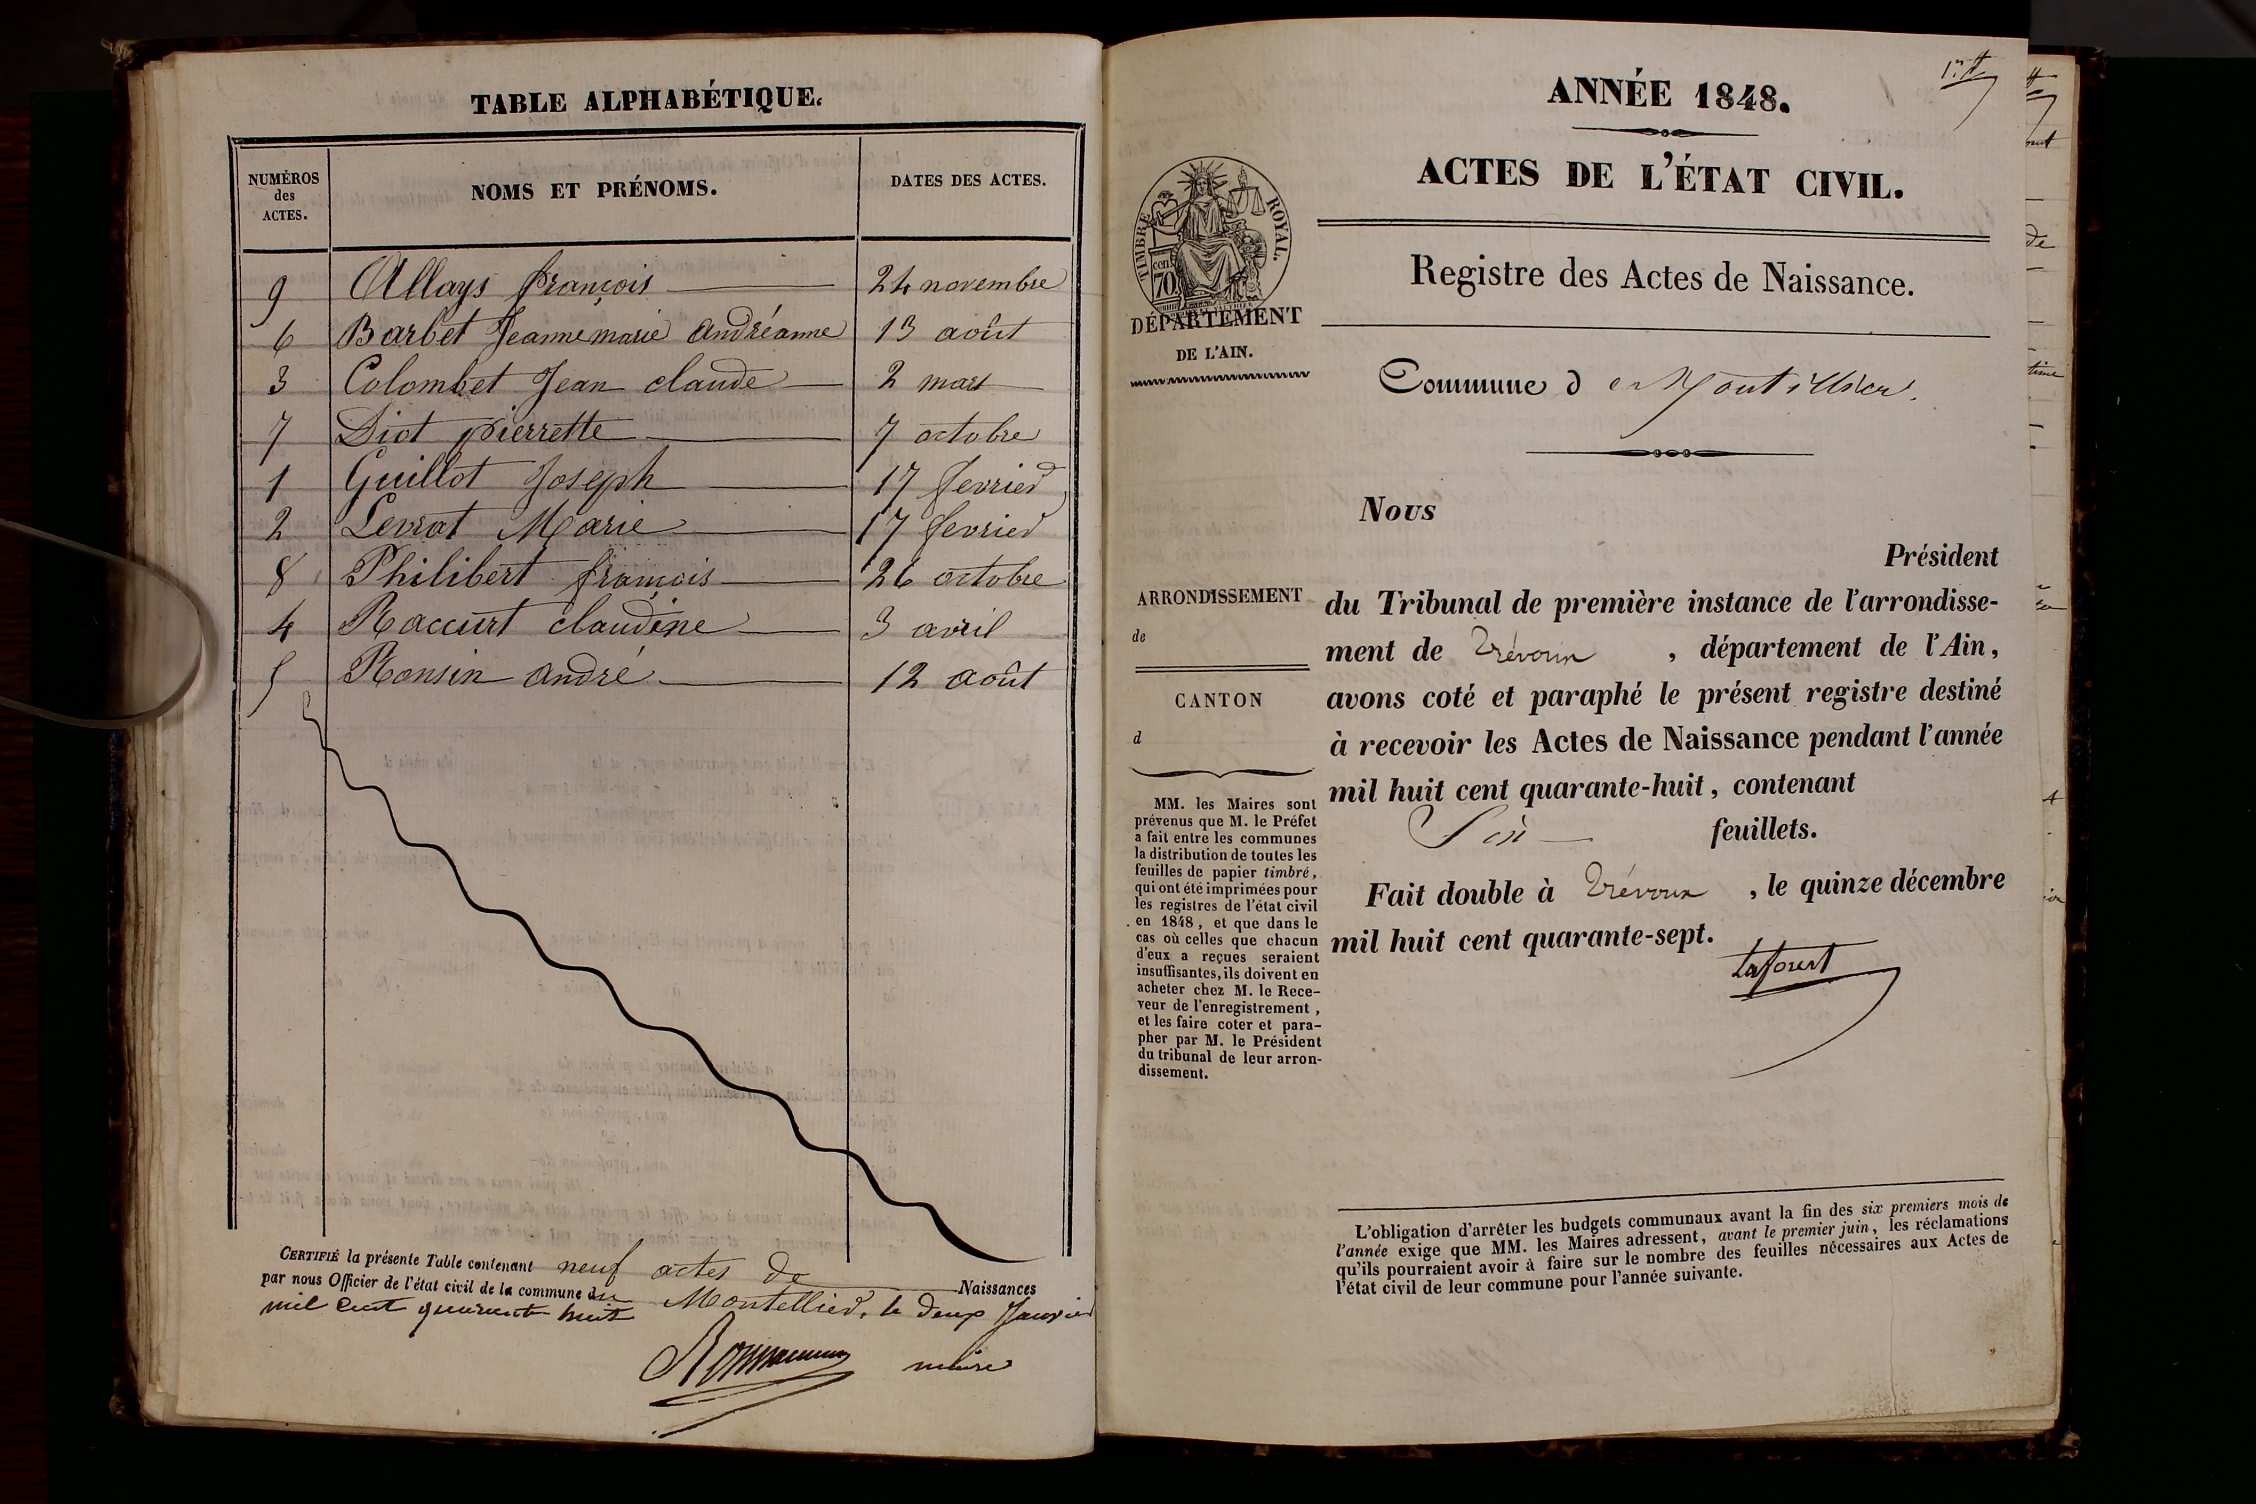 TABLE ALPHABÉTIQUE.
NUMÉROS des ACTES. NOMS ET PRÉNOMS. DATES DES ACTES.
9 Allays françois 24 novembre
6 Barbet Jeanne marie andréanne 13 août
3 Colombet Jean claude 2 mars
7 Diot pierrette 7 octobre
1 Guillot Joseph 17 fevrier
2 Levrat Marie 17 fevrier
8 Philibert françois 26 octobre
4 Raccurt claudine 3 avril
5 Ronsin andré 12 août
CERTIFIÉ la présente Table contenant neuf actes de Naissances
par nous Officier de l'état civil de la commune du Montellier, le deux Janvier
mil cent quarante huit
maire
1er
ANNÉE 1848.
ACTES DE L'ÉTAT CIVIL.
Registre des Actes de Naissance.
TIMBRE ROYAL.
cen. 70
DÉPARTEMENT
DE L'AIN.
Commune de Montellier.
Nous
Président
du Tribunal de première instance de l'arrondisse-
ment de Trévoux, département de l'Ain,
avons coté et paraphé le présent registre destiné
à recevoir les Actes de Naissance pendant l'année
mil huit cent quarante-huit, contenant
Six feuillets.
Fait double à Trévoux, le quinze décembre
mil huit cent quarante-sept.
ARRONDISSEMENT
de
CANTON
d
MM. les Maires sont
prévenus que M. le Préfet
a fait entre les communes
la distribution de toutes les
feuilles de papier timbré,
qui ont été imprimées pour
les registres de l'état civil
en 1848, et que dans le
cas où celles que chacun
d'eux a reçues seraient
insuffisantes, ils doivent en
acheter chez M. le Rece-
veur de l'enregistrement,
et les faire coter et para-
pher par M. le Président
du tribunal de leur arron-
dissement.
L'obligation d'arrêter les budgets communaux avant la fin des six premiers mois de
l'année exige que MM. les Maires adressent, avant le premier juin, les réclamations
qu'ils pourraient avoir à faire sur le nombre des feuilles nécessaires aux Actes de
l'état civil de leur commune pour l'année suivante.